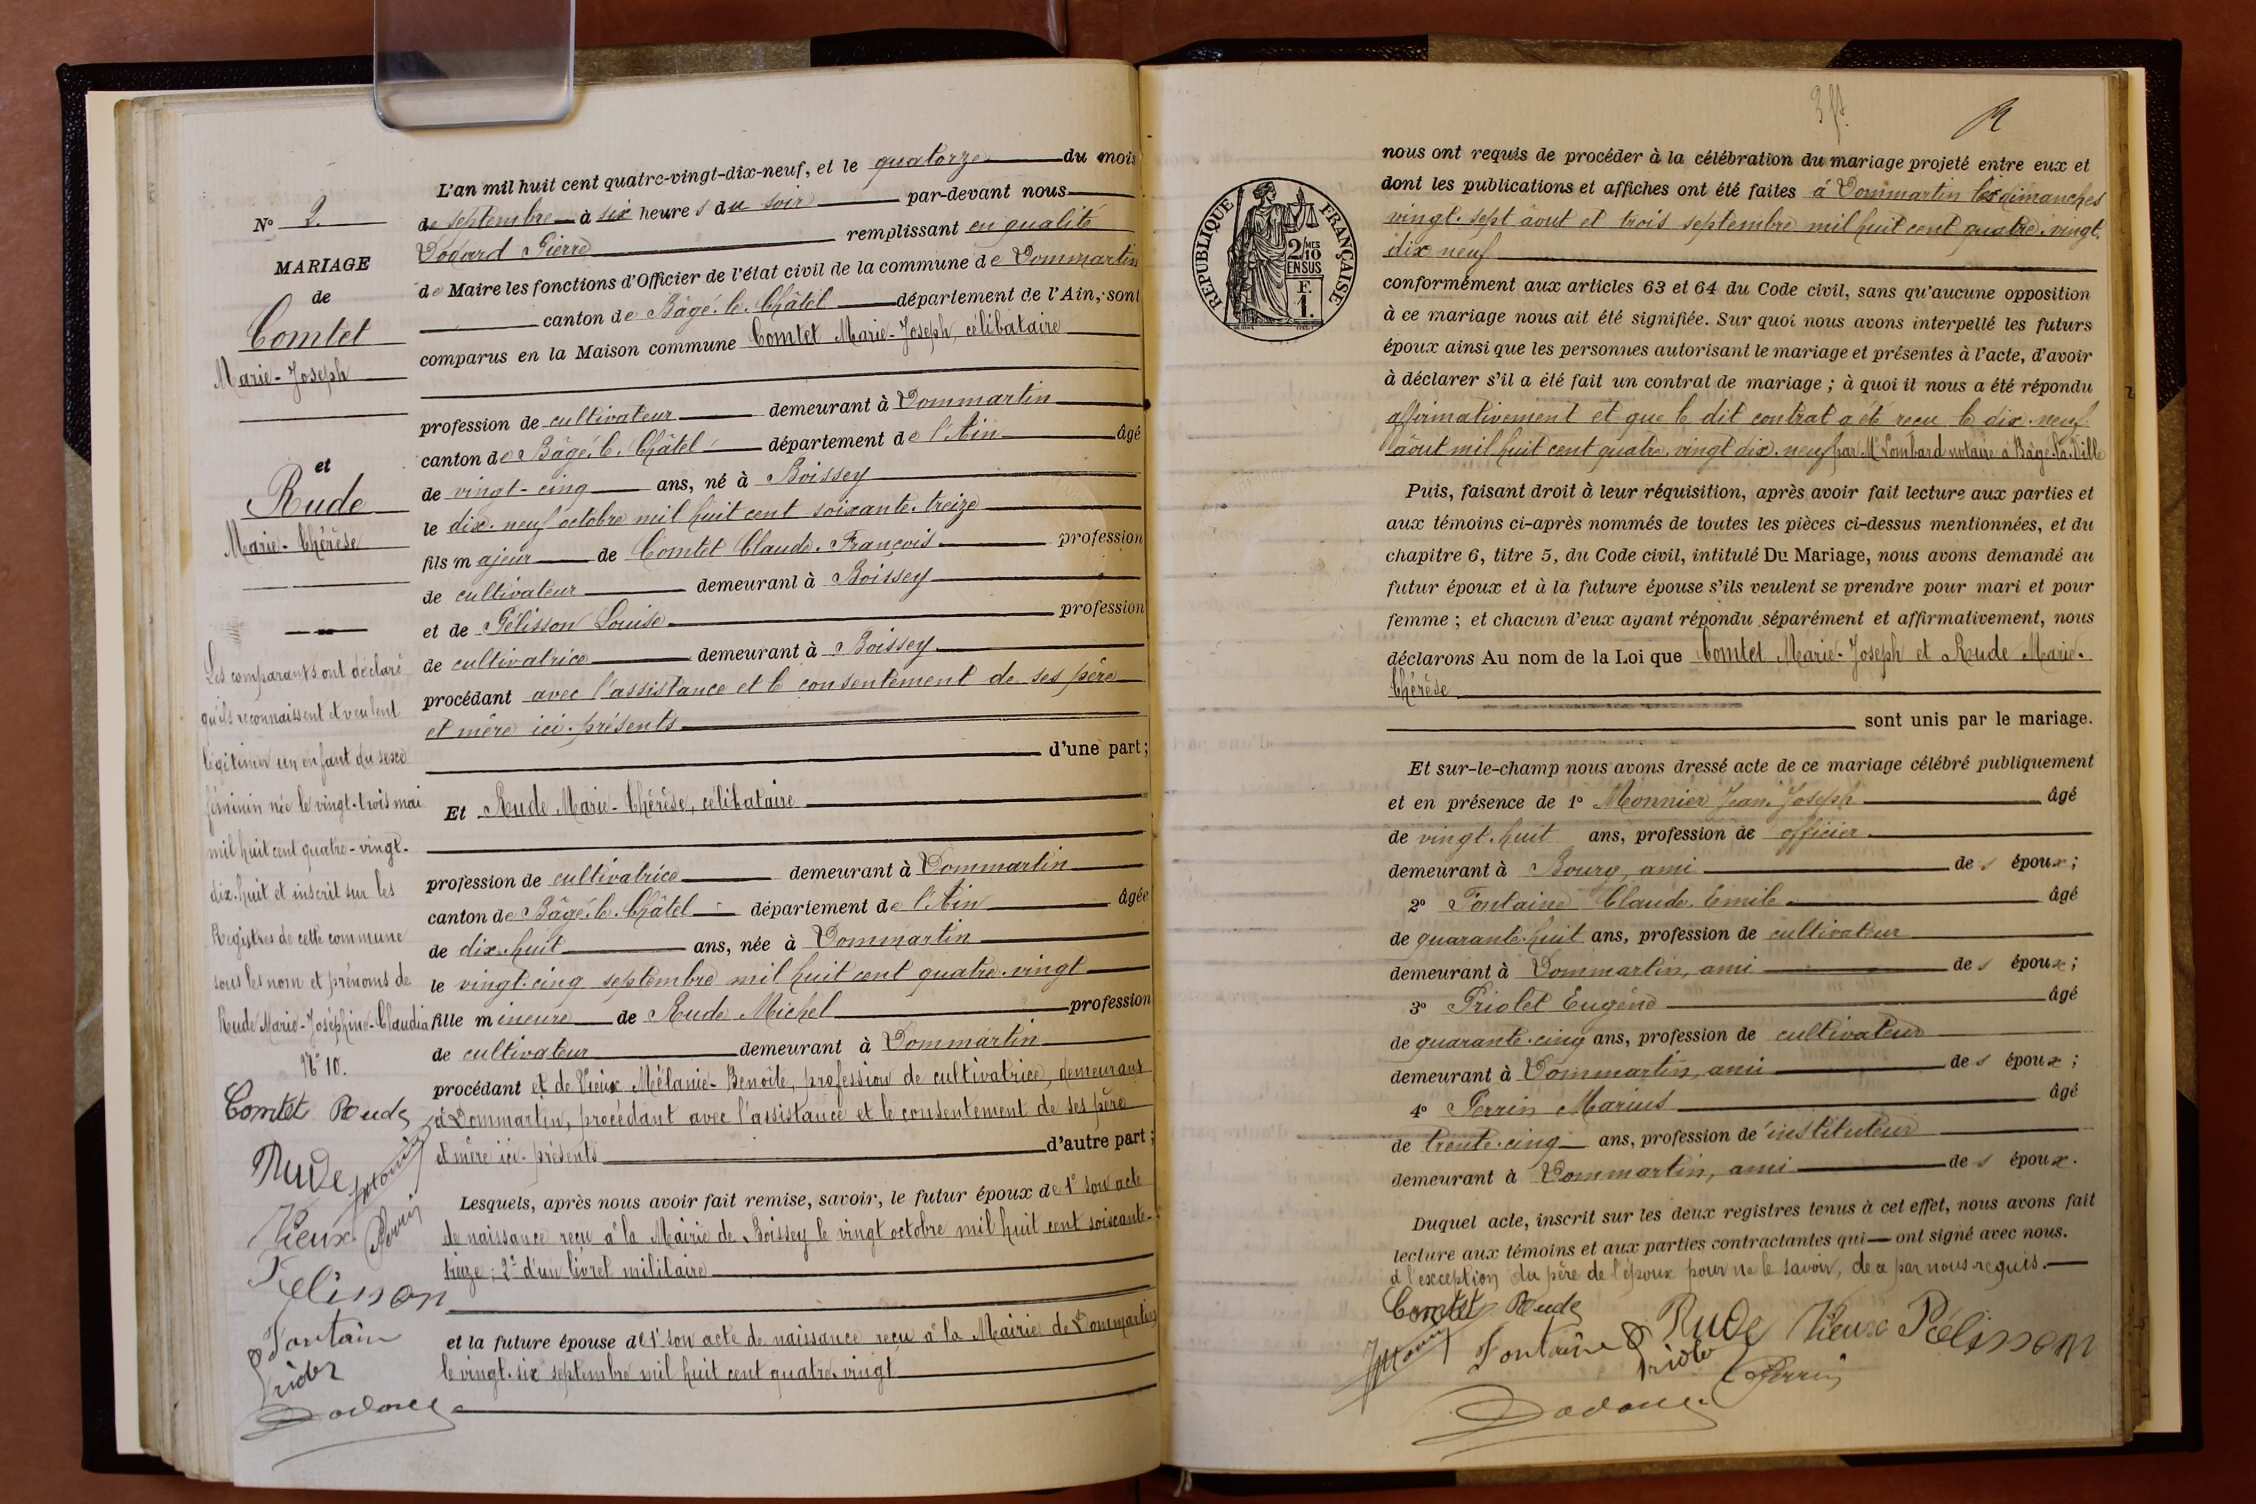 N° 2.
MARIAGE
de
Comtet
Marie-Joseph
et
Rude
Marie-Thérèse
Les comparants ont déclaré
qu'ils reconnaissent et veulent
légitimer un enfant du sexe
féminin née le vingt-trois mai
mil huit cent quatre-vingt-
dix-huit et inscrit sur les
Registres de cette commune
sous les nom et prénoms de
Rude Marie-Joséphine-Claudia
N° 10.
Comtet Rude
Rude
Vieux Perrin
Pelisson
Fontaine
Priolet
L'an mil huit cent quatre-vingt-dix-neuf, et le quatorze du mois
de septembre à six heures du soir par-devant nous
Pierre remplissant en qualité
de Maire les fonctions d'Officier de l'état civil de la commune de Dommartin
canton de Bâgé-le-Châtel département de l'Ain, sont
comparus en la Maison commune Comtet Marie-Joseph, célibataire
profession de cultivateur demeurant à Dommartin
canton de Bâgé-le-Châtel département de l'Ain âgé
de vingt-cinq ans, né à Boissey
le dix-neuf octobre mil huit cent soixante-treize
fils majeur de Comtet Claude-François profession
de cultivateur demeurant à Boissey
et de Pélisson Louise profession
de cultivatrice demeurant à Boissey
procédant avec l'assistance et le consentement de ses père
et mère ici présents
d'une part;
Et Rude Marie-Thérèse, célibataire
profession de cultivatrice demeurant à Dommartin
canton de Bâgé-le-Châtel département de l'Ain âgée
de dix-huit ans, née à Dommartin
le vingt-cinq septembre mil huit cent quatre-vingt
fille mineure de Rude Michel profession
de cultivateur demeurant à Dommartin
procédant et de Vieux Mélanie-Benoîte, profession de cultivatrice, demeurant
à Dommartin, procédant avec l'assistance et le consentement de ses père
et mère ici présents d'autre part;
Lesquels, après nous avoir fait remise, savoir, le futur époux de 1° son acte
de naissance reçu à la Mairie de Boissey le vingt octobre mil huit cent soixante-
treize; 2° d'un livret militaire
et la future épouse de 1° son acte de naissance reçu à la Mairie de Dommartin
le vingt-six septembre mil huit cent quatre-vingt
RÉPUBLIQUE FRANÇAISE
2/10 MES
EN SUS
F.
1.
nous ont requis de procéder à la célébration du mariage projeté entre eux et
dont les publications et affiches ont été faites à Dommartin les dimanches
vingt-sept août et trois septembre mil huit cent quatre-vingt-
dix neuf
conformément aux articles 63 et 64 du Code civil, sans qu'aucune opposition
à ce mariage nous ait été signifiée. Sur quoi nous avons interpellé les futurs
époux ainsi que les personnes autorisant le mariage et présentes à l'acte, d'avoir
à déclarer s'il a été fait un contrat de mariage ; à quoi il nous a été répondu
affirmativement et que le dit contrat a été reçu le dix-neuf
août mil huit cent quatre-vingt dix-neuf par Me Lombard notaire à Bâgé-la-Ville
Puis, faisant droit à leur réquisition, après avoir fait lecture aux parties et
aux témoins ci-après nommés de toutes les pièces ci-dessus mentionnées, et du
chapitre 6, titre 5, du Code civil, intitulé Du Mariage, nous avons demandé au
futur époux et à la future épouse s'ils veulent se prendre pour mari et pour
femme ; et chacun d'eux ayant répondu séparément et affirmativement, nous
déclarons Au nom de la Loi que Comtet Marie-Joseph et Rude Marie-
Thérèse
sont unis par le mariage.
Et sur-le-champ nous avons dressé acte de ce mariage célébré publiquement
et en présence de 1° Monnier Jean-Joseph âgé
de vingt-huit ans, profession de officier
demeurant à Bourg, ami des époux;
2° Fontaine Claude-Emile âgé
de quarante-huit ans, profession de cultivateur
demeurant à Dommartin, ami des époux;
3° Priolet Eugène âgé
de quarante-cinq ans, profession de cultivateur
demeurant à Dommartin, ami des époux;
4° Perrin Marius âgé
de trente-cinq ans, profession de instituteur
demeurant à Dommartin, ami des époux.
Duquel acte, inscrit sur les deux registres tenus à cet effet, nous avons fait
lecture aux témoins et aux parties contractantes qui ont signé avec nous.
à l'exception du père de l'époux pour ne le savoir, de ce par nous requis.
Comtet Rude Rude Vieux Pélisson
Fontaine Priolet Perrin